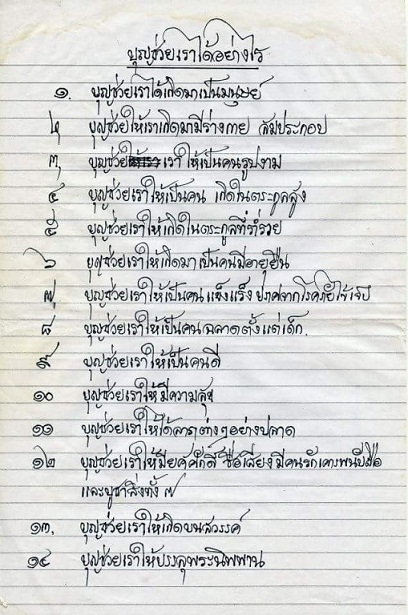 บุญช่วยเราได้อย่างไร
๑. บุญช่วยเราได้เกิดมาเป็นมนุษย์
๒ บุญช่วยให้เราเกิดมามีร่างกาย สมประกอบ
๓ บุญช่วยเรา ให้เป็นคนรูปงาม
๔ บุญช่วยเราให้เป็นคน เกิดในตระกูลสูง
๕ บุญช่วยเราให้เกิดในตระกูลที่ร่ำรวย
๖ บุญช่วยเราให้เกิดมาเป็นคนมีอายุยืน
๗ บุญช่วยเราให้เป็นคน แข็งแร็ง ปราศจากโรคภัยไข้เจ็บ
๘ บุญช่วยเราให้เป็นคนฉลาดตั้งแต่เด็ก.
๙ บุญช่วยเราให้เป็นคนดี
๑๐ บุญช่วยเราให้มีความสุข
๑๑ บุญช่วยเราให้ได้ลาภต่างๆอย่างปลาด
๑๒ บุญช่วยเราให้มียศศักดิ์ ชื่อเสียง มีคนรักเคารพนับถือ
และบูชาสิ่งทั้ง ๗
๑๓. บุญช่วยเราให้เกิดบนสวรรค์
๑๔ บุญช่วยเราให้บรรลุพระนิพพาน